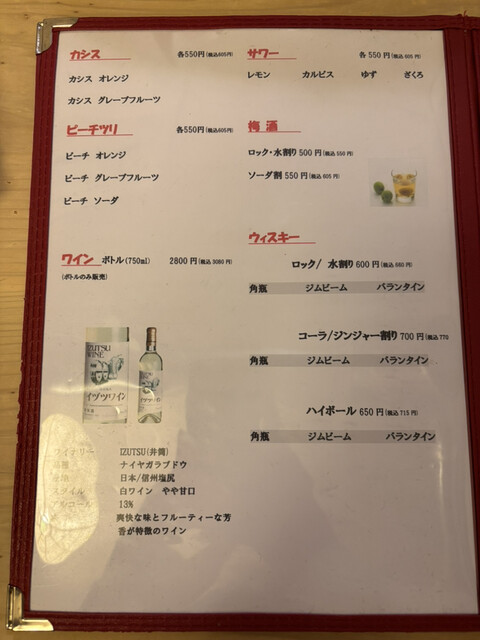 カシス 各550円(税込605円)
カシス オレンジ
カシス グレープフルーツ
ピーチツリ 各550円(税込605円)
ピーチ オレンジ
ピーチ グレープフルーツ
ピーチ ソーダ
ワイン ボトル(750ml) 2800円(税込3080円)
(ボトルのみ販売)
IZUTSU
WINE
イヅツワイン
ワイナリー IZUTSU(井筒)
品種 ナイヤガラブドウ
日本/信州塩尻
スタイル 白ワイン やや甘口
アルコール 13%
爽快な味とフルーティーな芳
香が特徴のワイン
サワー 各550円(税込605円)
レモン カルピス ゆず ざくろ
梅酒
ロック・水割り 500円(税込550円)
ソーダ割 550円(税込605円)
ウィスキー
ロック/ 水割り 600円(税込660円)
角瓶 ジムビーム バランタイン
コーラ/ジンジャー割り 700円(税込770
角瓶 ジムビーム バランタイン
ハイボール 650円(税込715円)
角瓶 ジムビーム バランタイン